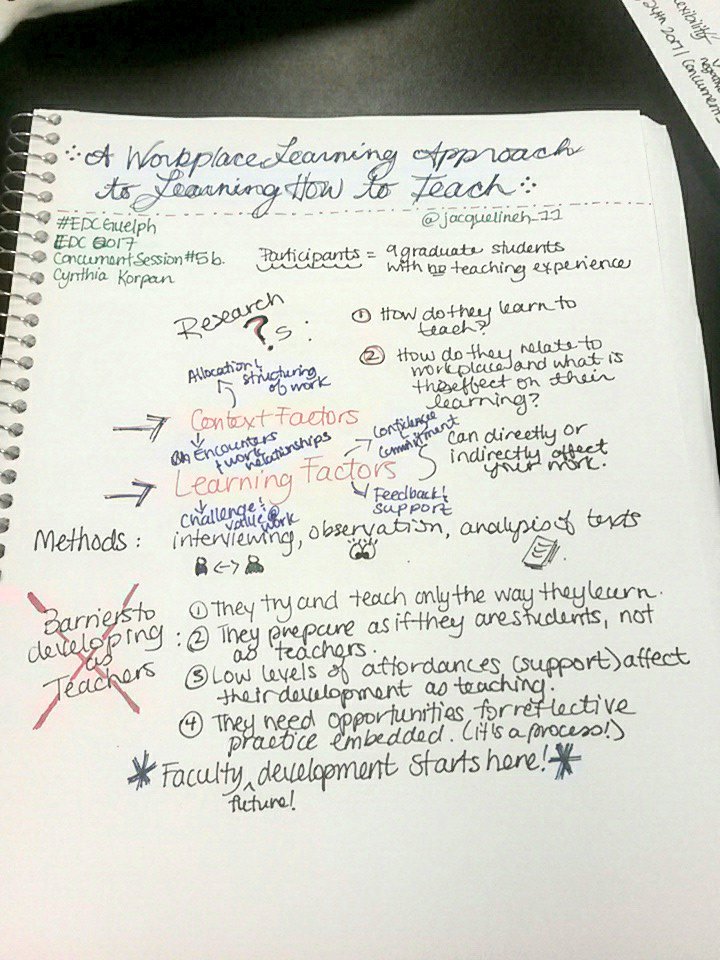 A Workplace Learning Approach
to Learning How to Teach
#EDCGuelph
EDC 2017
Concurrent Session #5b.
Cynthia Korpan
@jacquelineh_11
Participants = 9 graduate students
with no teaching experience
Research
?s:
① How do they learn to
teach?
② How do they relate to
workplace and what is
the effect on their
learning?
Allocation!
structuring
of work
→ Context Factors
Encounters
+ work
relationships
→ Learning Factors
Confidence
commitment
Can directly or
indirectly affect
your work.
Challenge!
value @
work
Feedback!
support
Methods: interviewing, observation, analysis of texts
Barriers to
developing
as
Teachers
:
① They try and teach only the way they learn.
② They prepare as if they are students, not
as teachers.
③ Low levels of affordances (support) affect
their development as teaching.
④ They need opportunities for reflective
practice embedded. (it's a process!)
* Faculty ^ development starts here! *
future!
exibility
24th 2017 | Concurrent